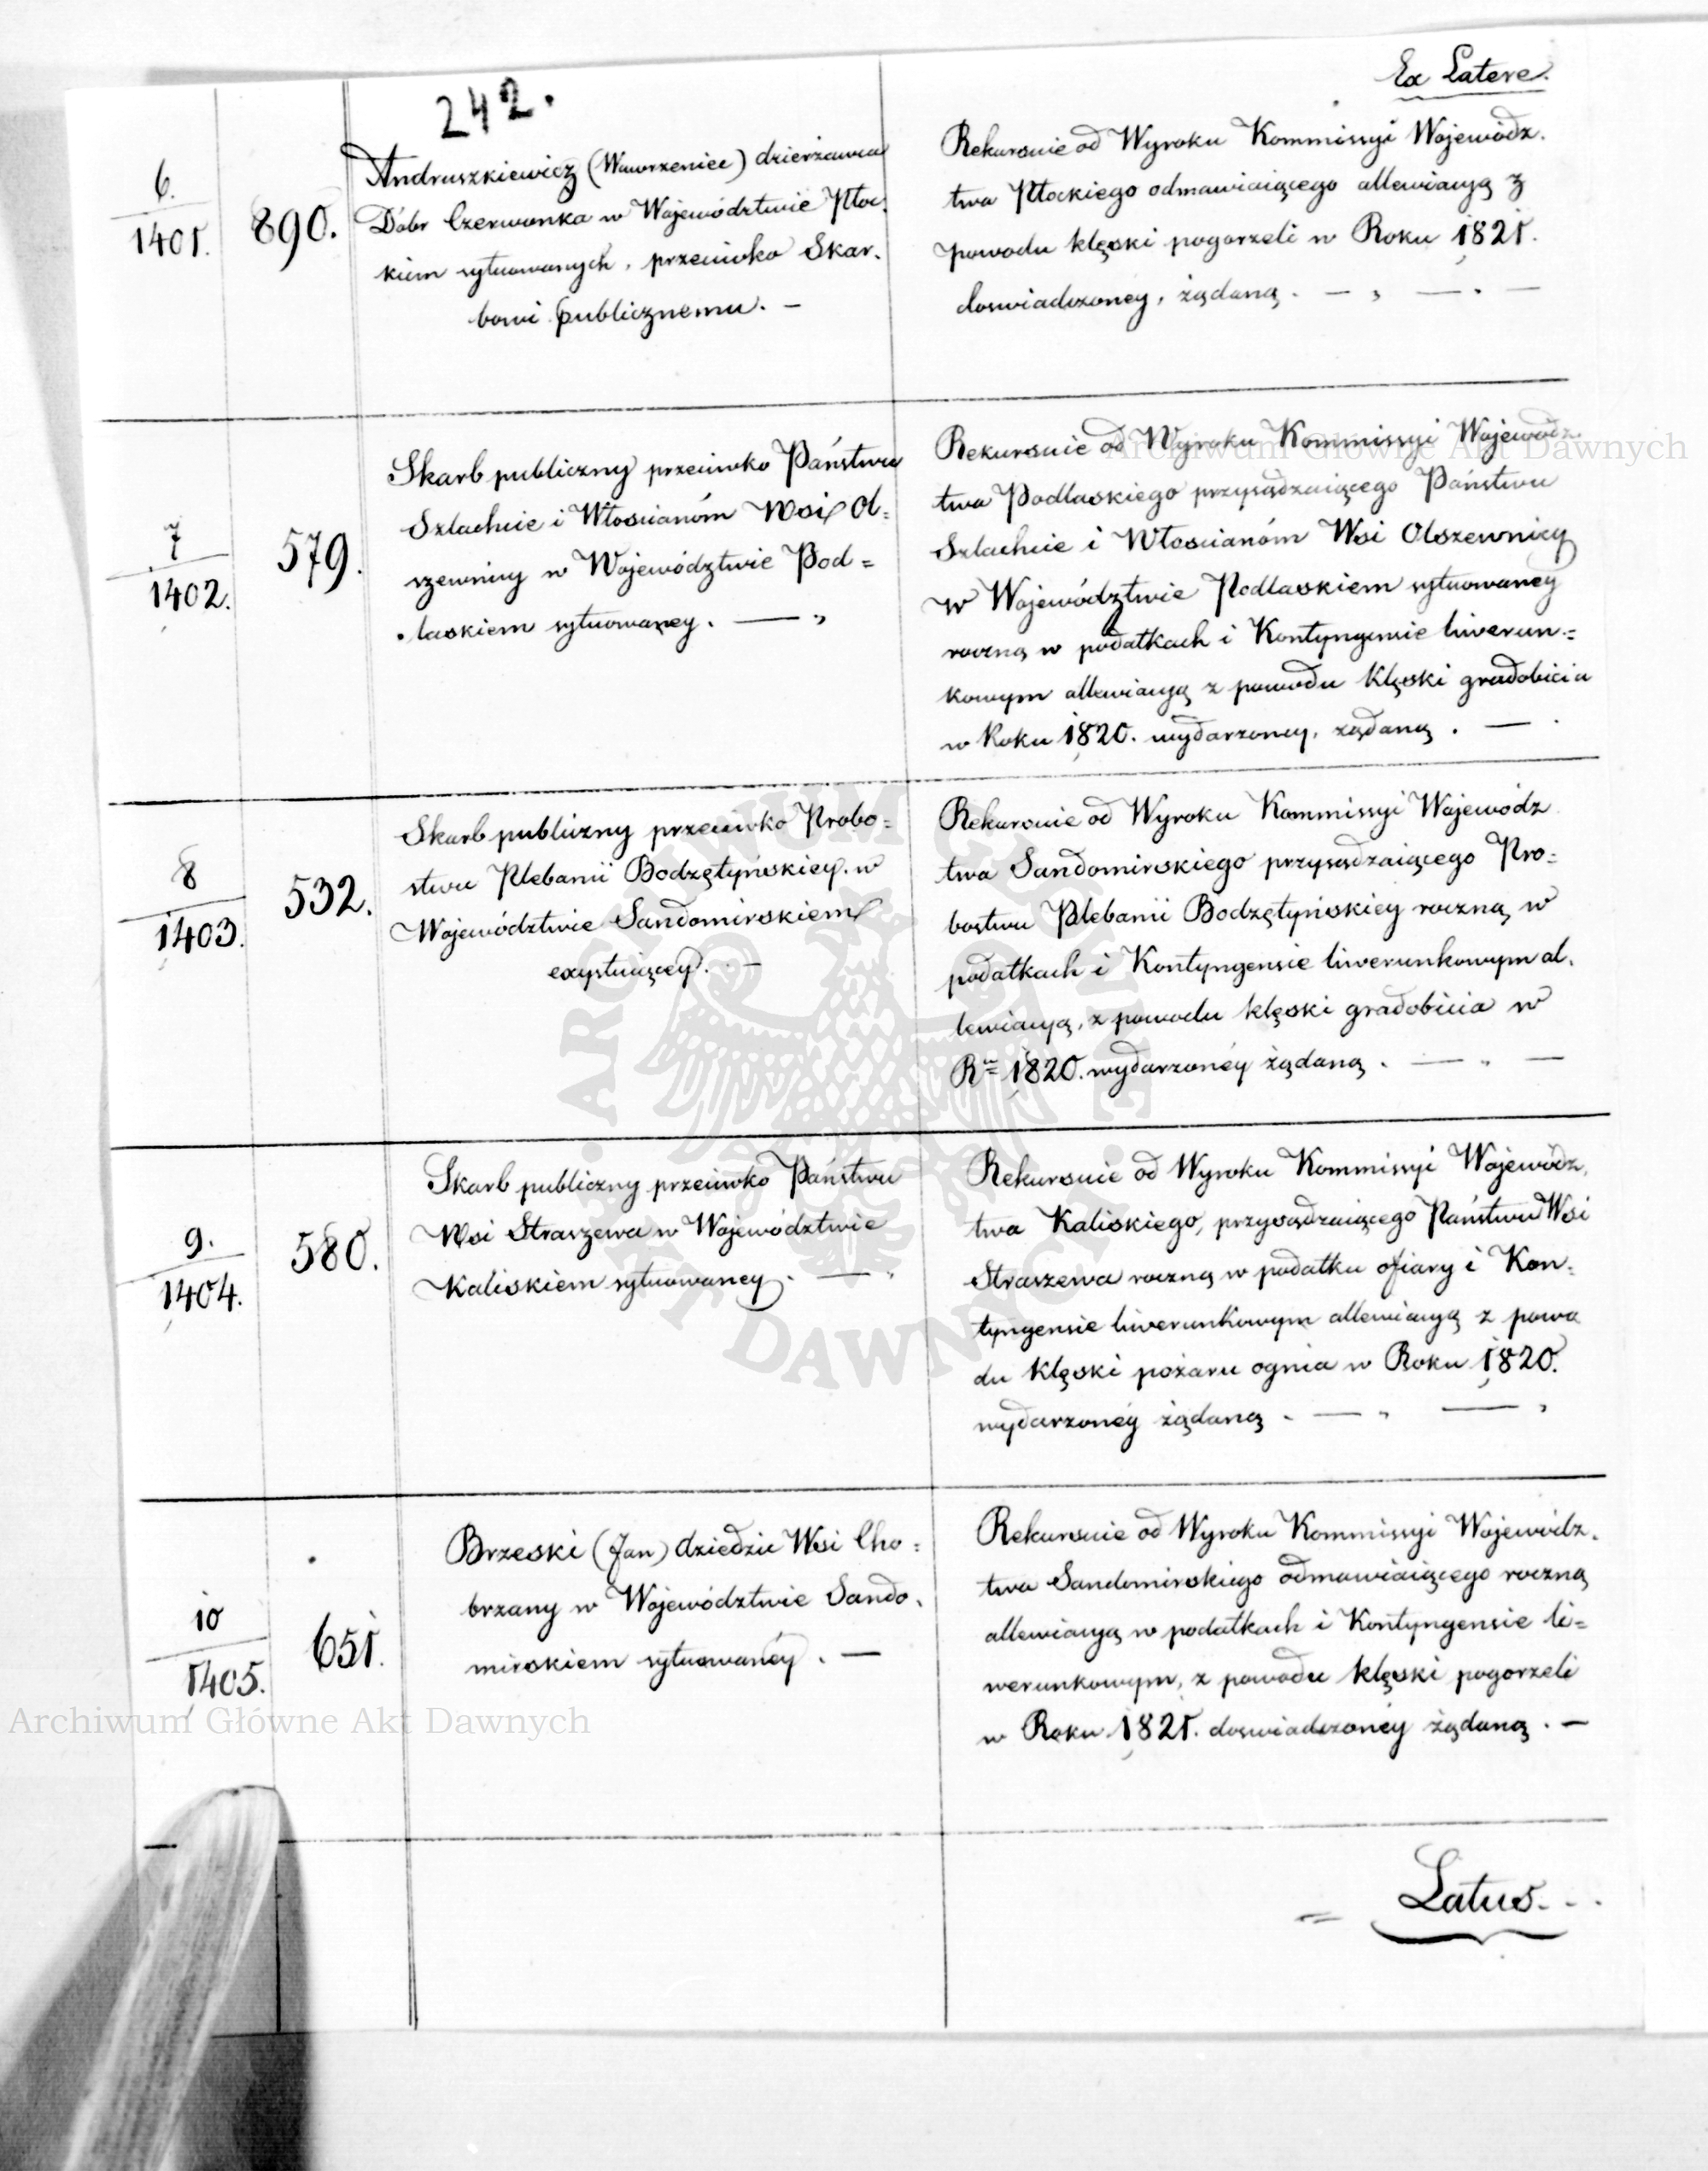 242.
Ex Latere.
6.
1401.
890.
Andruszkiewicz (Wawrzeniec) dzierżawca
Dóbr Czerwonka w Województwie Płoc.
kiem sytuowanych, przeciwko Skar.
bowi publicznemu. —
Rekursuie od Wyroku Kommissyi Wojewódz.
twa Płockiego odmawiaiącego allewiacyą z
powodu klęski pogorzeli w Roku 1821.
doswiadczoney, żądaną. — , — . —
7
1402.
579.
Skarb publiczny przeciwko Państwu
Szlachcie i Włościanóm Wsi Ol=
szewnicy w Województwie Pod=
laskiem sytuowaney. — ,
Rekursuie od Wyroku Kommissyi Wojewódz.
twa Podlaskiego przysądzaiącego Państwu
Szlachcie i Włościanóm Wsi Olszewnicy
w Województwie Podlaskiem sytuowaney
roczną w podatkach i Kontyngensie liwerun=
kowym allewiacyą z powodu klęski gradobicia
w Roku 1820. wydarzoney, żądaną. — .
8
1403.
532.
Skarb publiczny przeciwko Probo=
stwu Plebanii Bodzętyńskiey w
Województwie Sandomirskiem
exystuiącey. —
Rekursuie od Wyroku Kommissyi Wojewódz
twa Sandomirskiego przysądzaiącego Pro=
bostwu Plebanii Bodzętyńskiey roczną w
podatkach i Kontyngensie liwerunkowym al.
lewiacyą, z powodu klęski gradobicia w
Ru 1820. wydarzonéy żądaną. — „ —
9.
1404.
580.
Skarb publiczny przeciwko Państwu
Wsi Straszewa w Województwie
Kaliskiem sytuowaney. — .
Rekursuie od Wyroku Kommissyi Wojewódz,
twa Kaliskiego, przysądzaiącego Państwu Wsi
Straszewa roczną w podatku ofiary i Kon=
tyngensie liwerunkowym allewiacyą z powo
du klęski pożaru ognia w Roku 1820.
wydarzonéy żądaną. — „ — ,
10
1405.
651.
Brzeski (Jan) dziedzic Wsi Cho=
brzany w Województwie Sando.
mirskiem sytuowanéy. —
Rekursuie od Wyroku Kommissyi Wojewódz.
twa Sandomirskiego odmawiaiącego roczną
allewiacyą w podatkach i Kontyngensie li=
werunkowym, z powodu klęski pogorzeli
w Roku 1821. doswiadczonéy żądaną. —
Latus. . .
Archiwum Główne Akt Dawnych
Archiwum Główne Akt Dawnych
ARCHIWUM GŁÓWNE AKT DAWNYCH